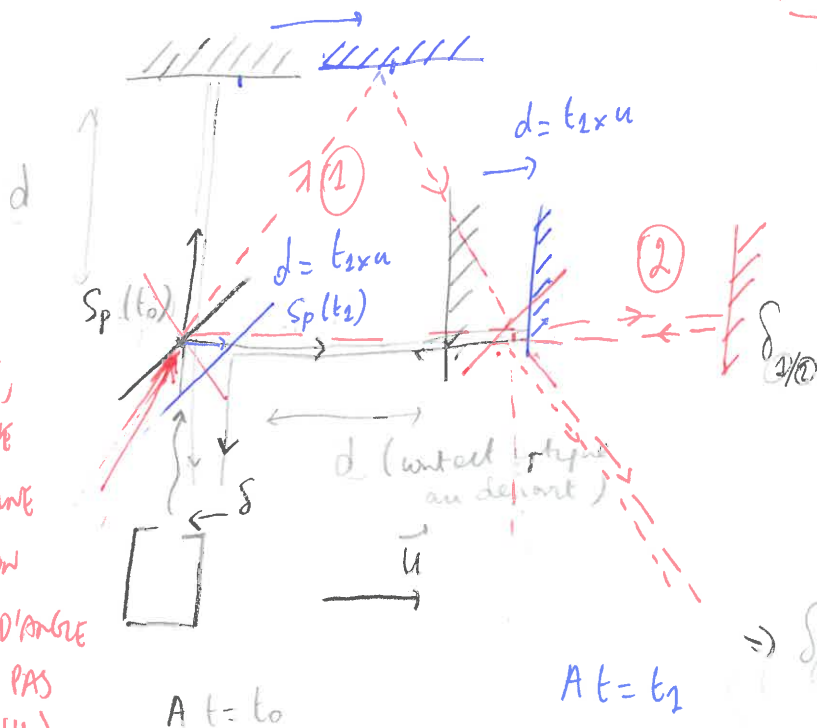 d = t₁ × u
d
1
d = t₁ × u
Sp (t₀)
Sp (t₁)
2
δ 1/2
d (contact optique
au départ)
UNE
δ
u
D'ANGLE
PAS
⇒ δ
A t = t₀
A t = t₁